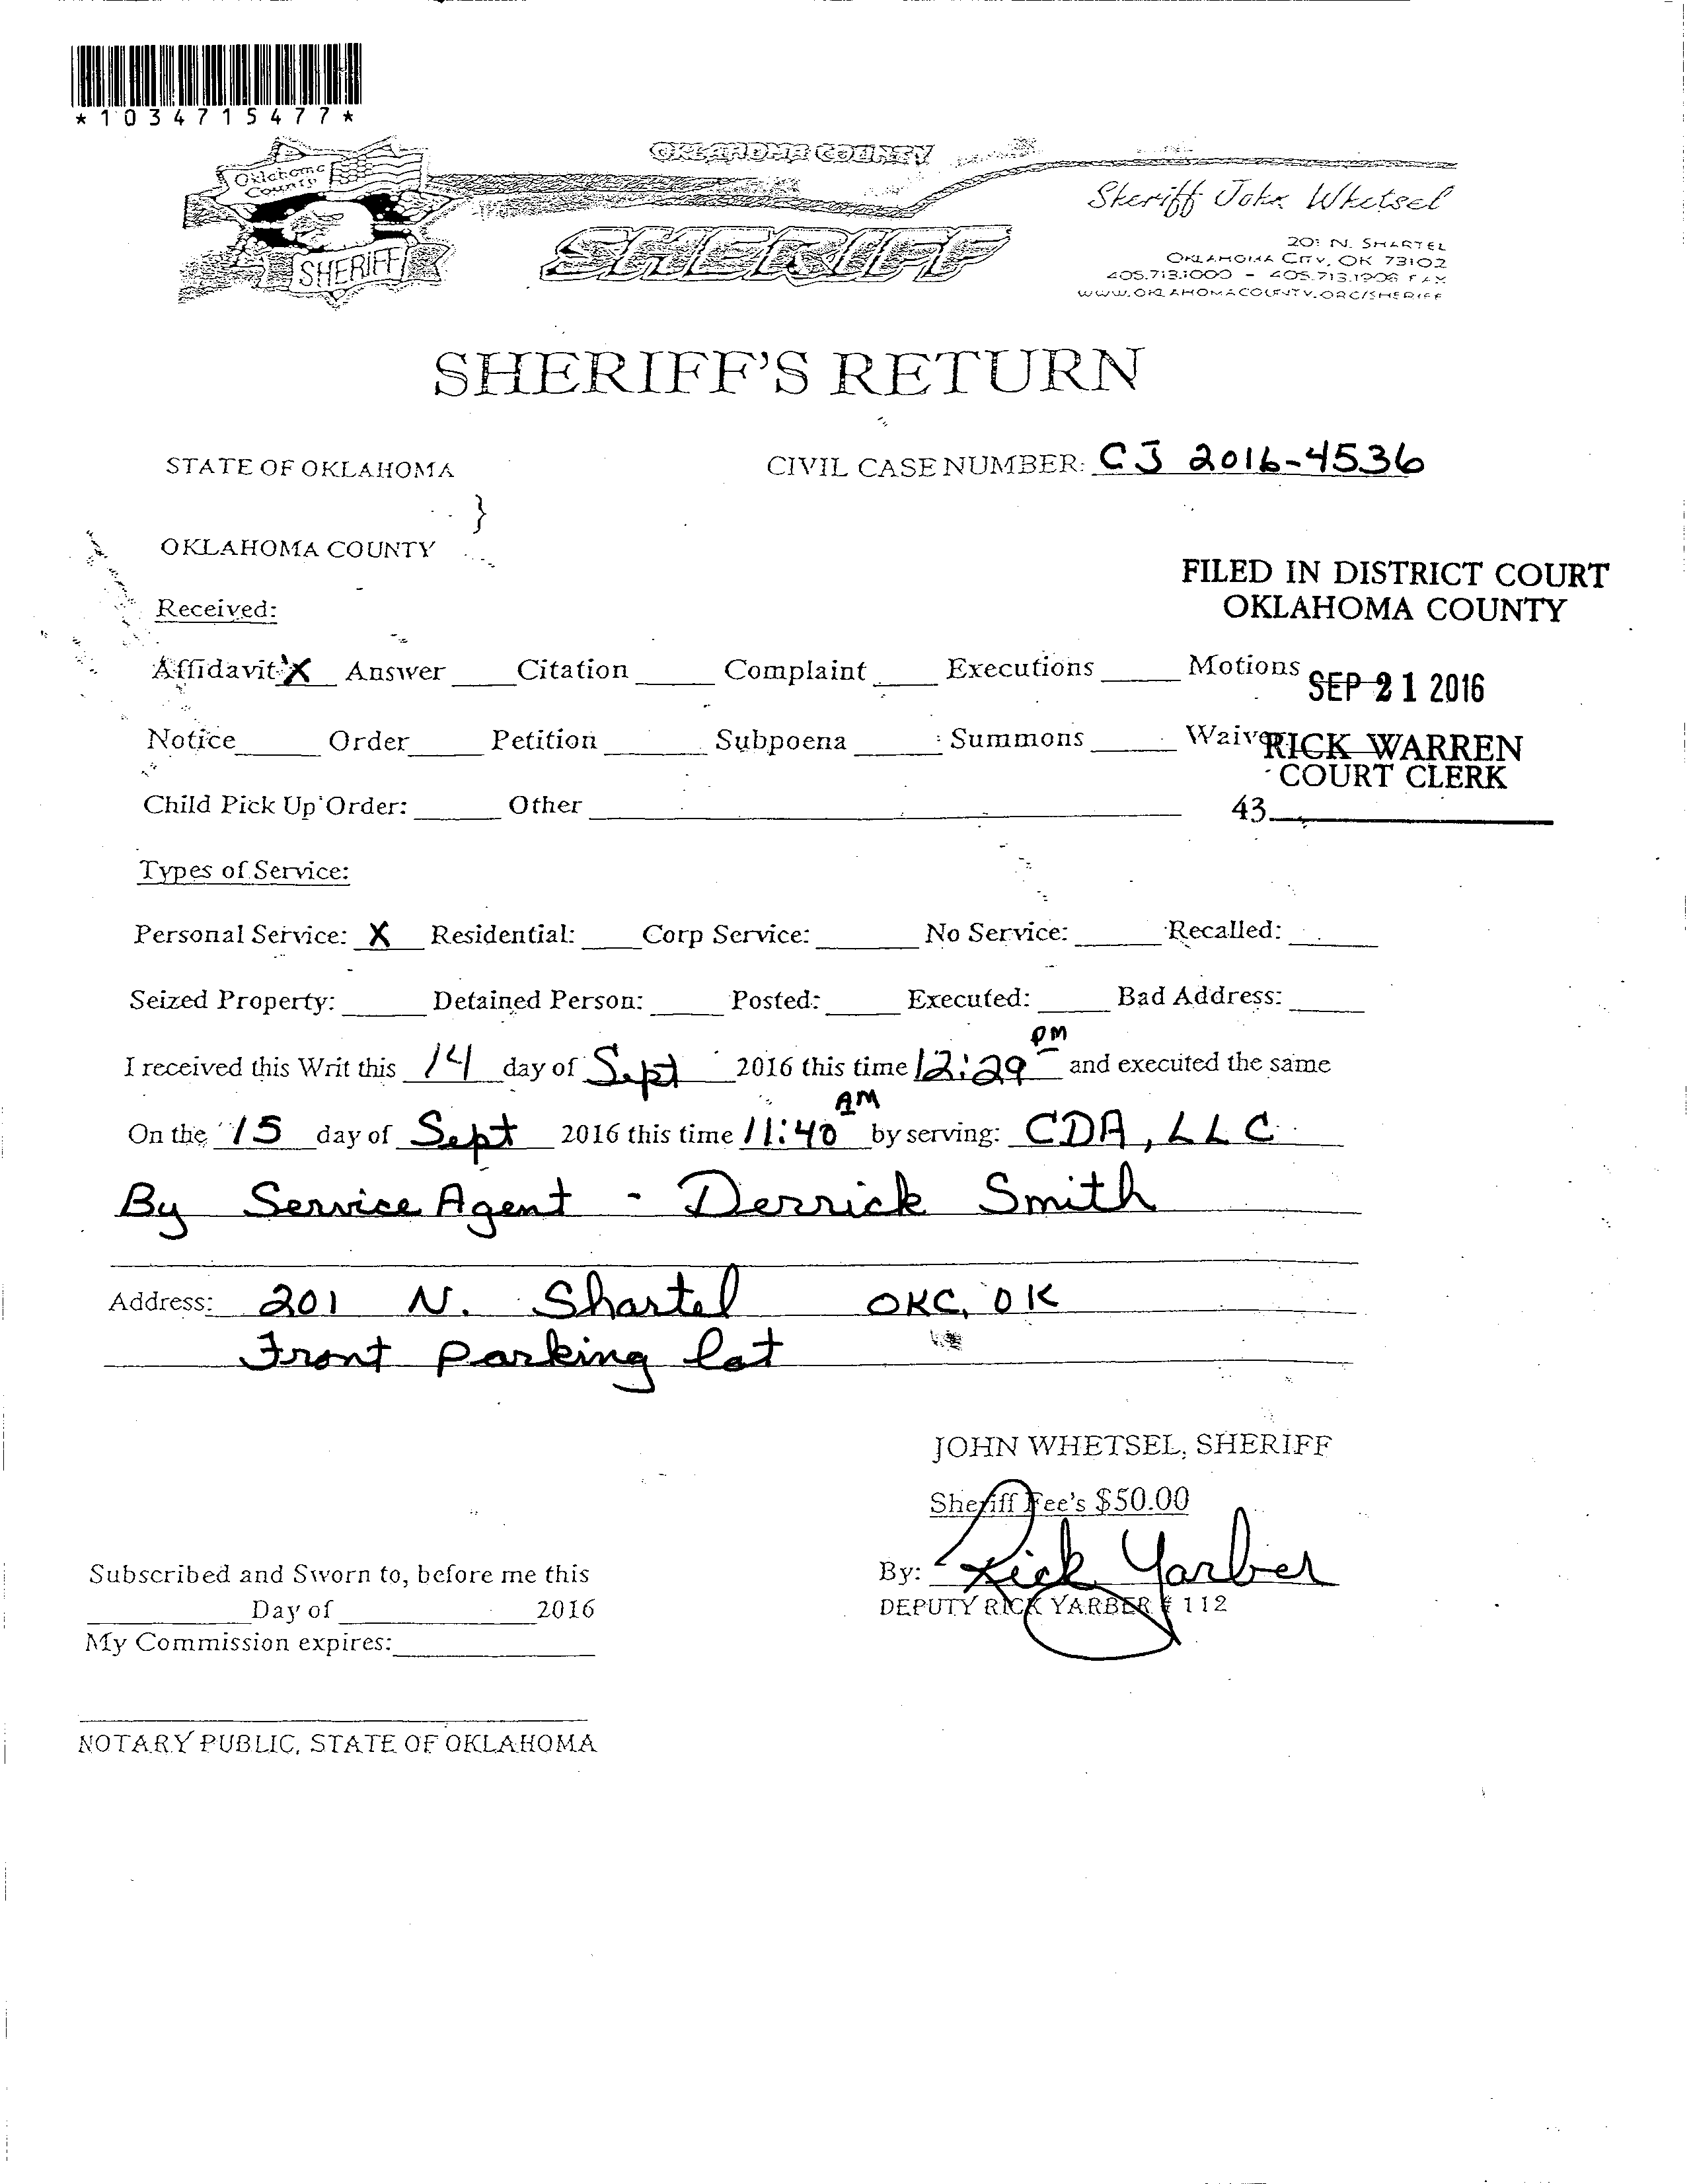 *1034715477*
Oklahoma
County
SHERIFF
OKLAHOMA COUNTY
SHERIFF
Sheriff John Whetsel
201 N. SHARTEL
OKLAHOMA CITY, OK 73102
405.713.1000 - 405.713.1908 FAX
WWW.OKLAHOMACOUNTY.ORG/SHERIFF
SHERIFF'S RETURN
STATE OF OKLAHOMA CIVIL CASE NUMBER: CJ 2016-4536
}
OKLAHOMA COUNTY
FILED IN DISTRICT COURT
OKLAHOMA COUNTY
Received:
Affidavit X Answer Citation Complaint Executions Motions
SEP 21 2016
Notice Order Petition Subpoena Summons
RICK WARREN
COURT CLERK
Child Pick Up Order: Other
43
Types of Service:
Personal Service: X Residential: Corp Service: No Service: Recalled:
Seized Property: Detained Person: Posted: Executed: Bad Address:
I received this Writ this 14 day of Sept 2016 this time 12:29 PM and executed the same
On the 15 day of Sept 2016 this time 11:40 AM by serving: CDA, LLC
By Service Agent - Derrick Smith
Address: 201 N. Shartel OKC, OK
Front parking lot
JOHN WHETSEL, SHERIFF
Sheriff Fee's $50.00
By: Rick Yarber
DEPUTY RICK YARBER # 112
Subscribed and Sworn to, before me this
Day of 2016
My Commission expires:
NOTARY PUBLIC, STATE OF OKLAHOMA